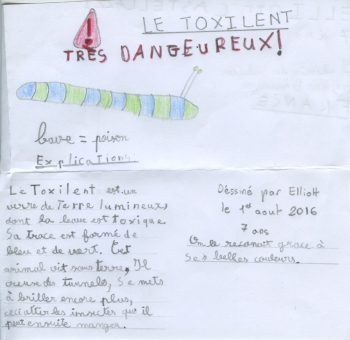 LE TOXILENT
TRÈS DANGEUREUX!
bave = poison
Explications
Le Toxilent est un
verre de terre lumineux,
dont la bave est toxique.
Sa trace est formé de
bleu et de vert. Cet
animal vit sous terre, Il
creuse des tunnels, Se mets
à briller encore plus,
les insectes qu'il
peut ensuite manger.
Déssiné par Elliott
le 1er aout 2016
7 ans
On le reconait grace à
Ses belles couleurs.